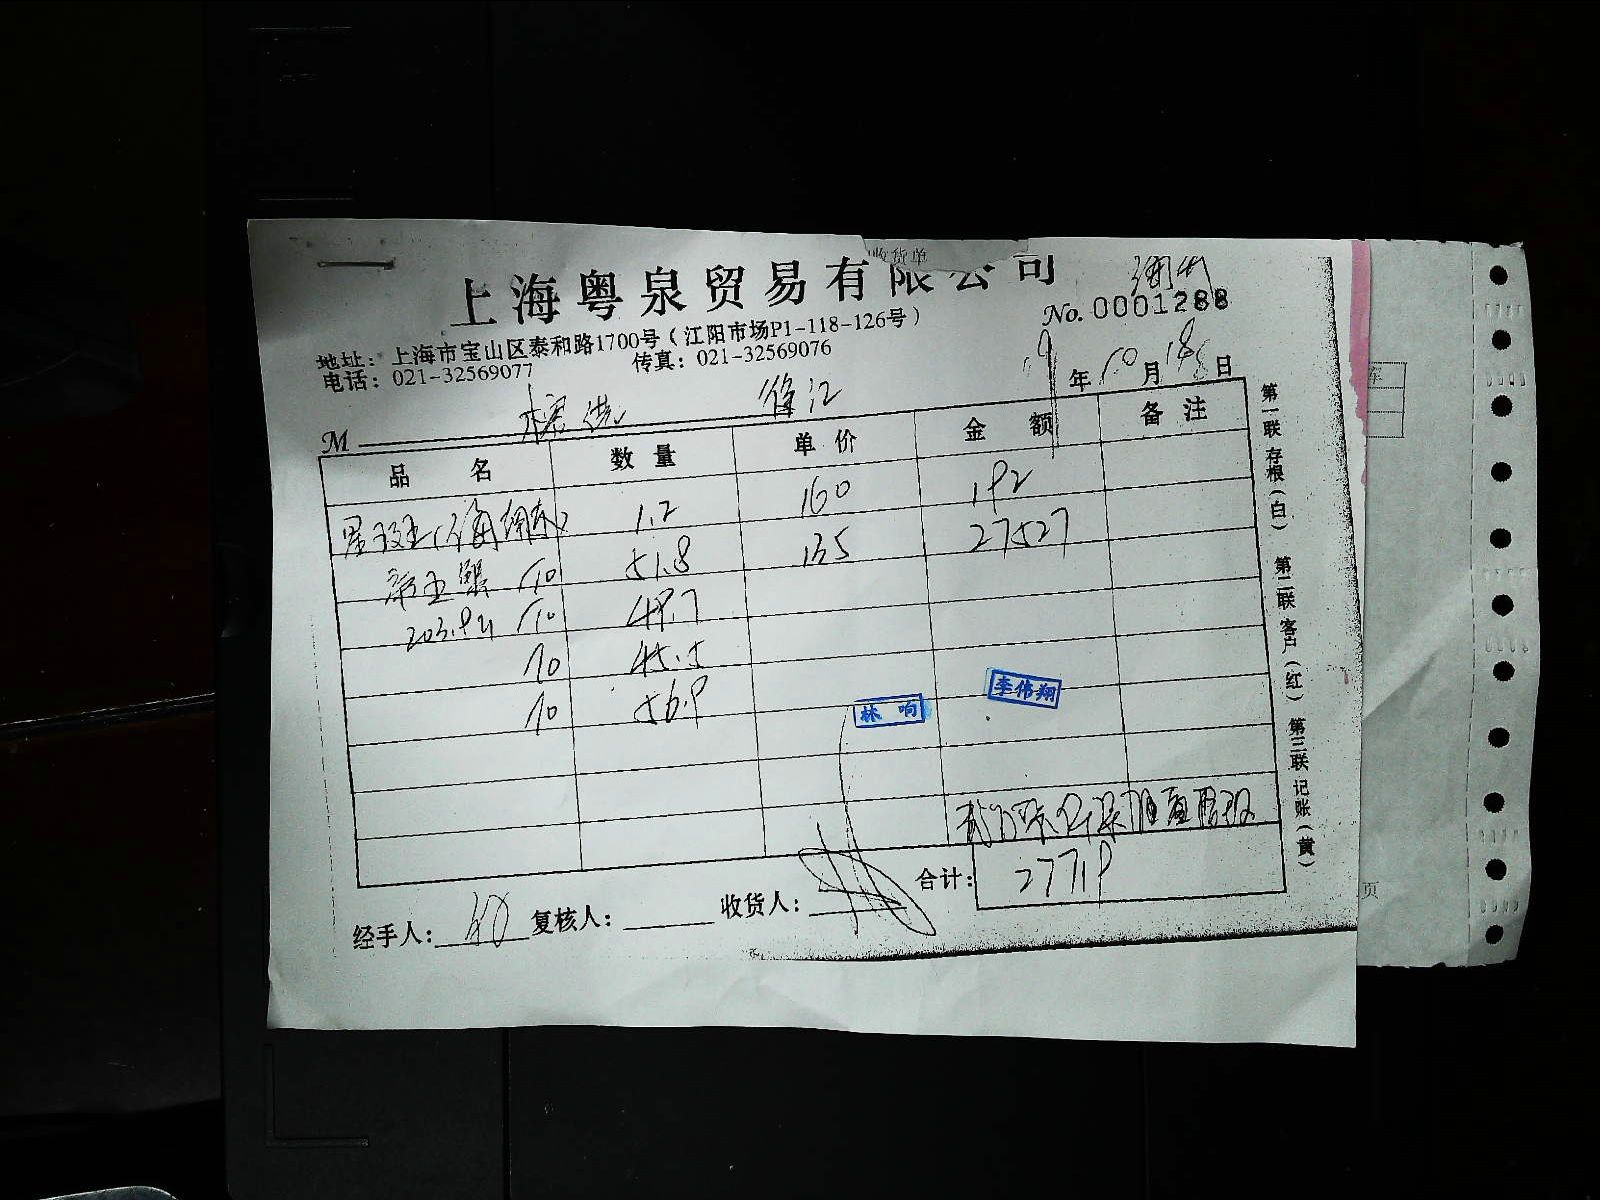 收货单
上海粤泉贸易有限公司
No. 0001288
地址：上海市宝山区泰和路1700号（江阳市场P1-118-126号）
电话：021-32569077 传真：021-32569076
19年10月18日
M 徐汇
品名 数量 单价 金额 备注
1.2 160 192
帝王蟹 10 51.8 135 27527
203.9斤 10 49.7
10 45.5
10 56.9
林响 李伟翔
合计： 27719
经手人： 复核人： 收货人：
第一联 存根（白） 第二联 客户（红） 第三联 记账（黄）
页